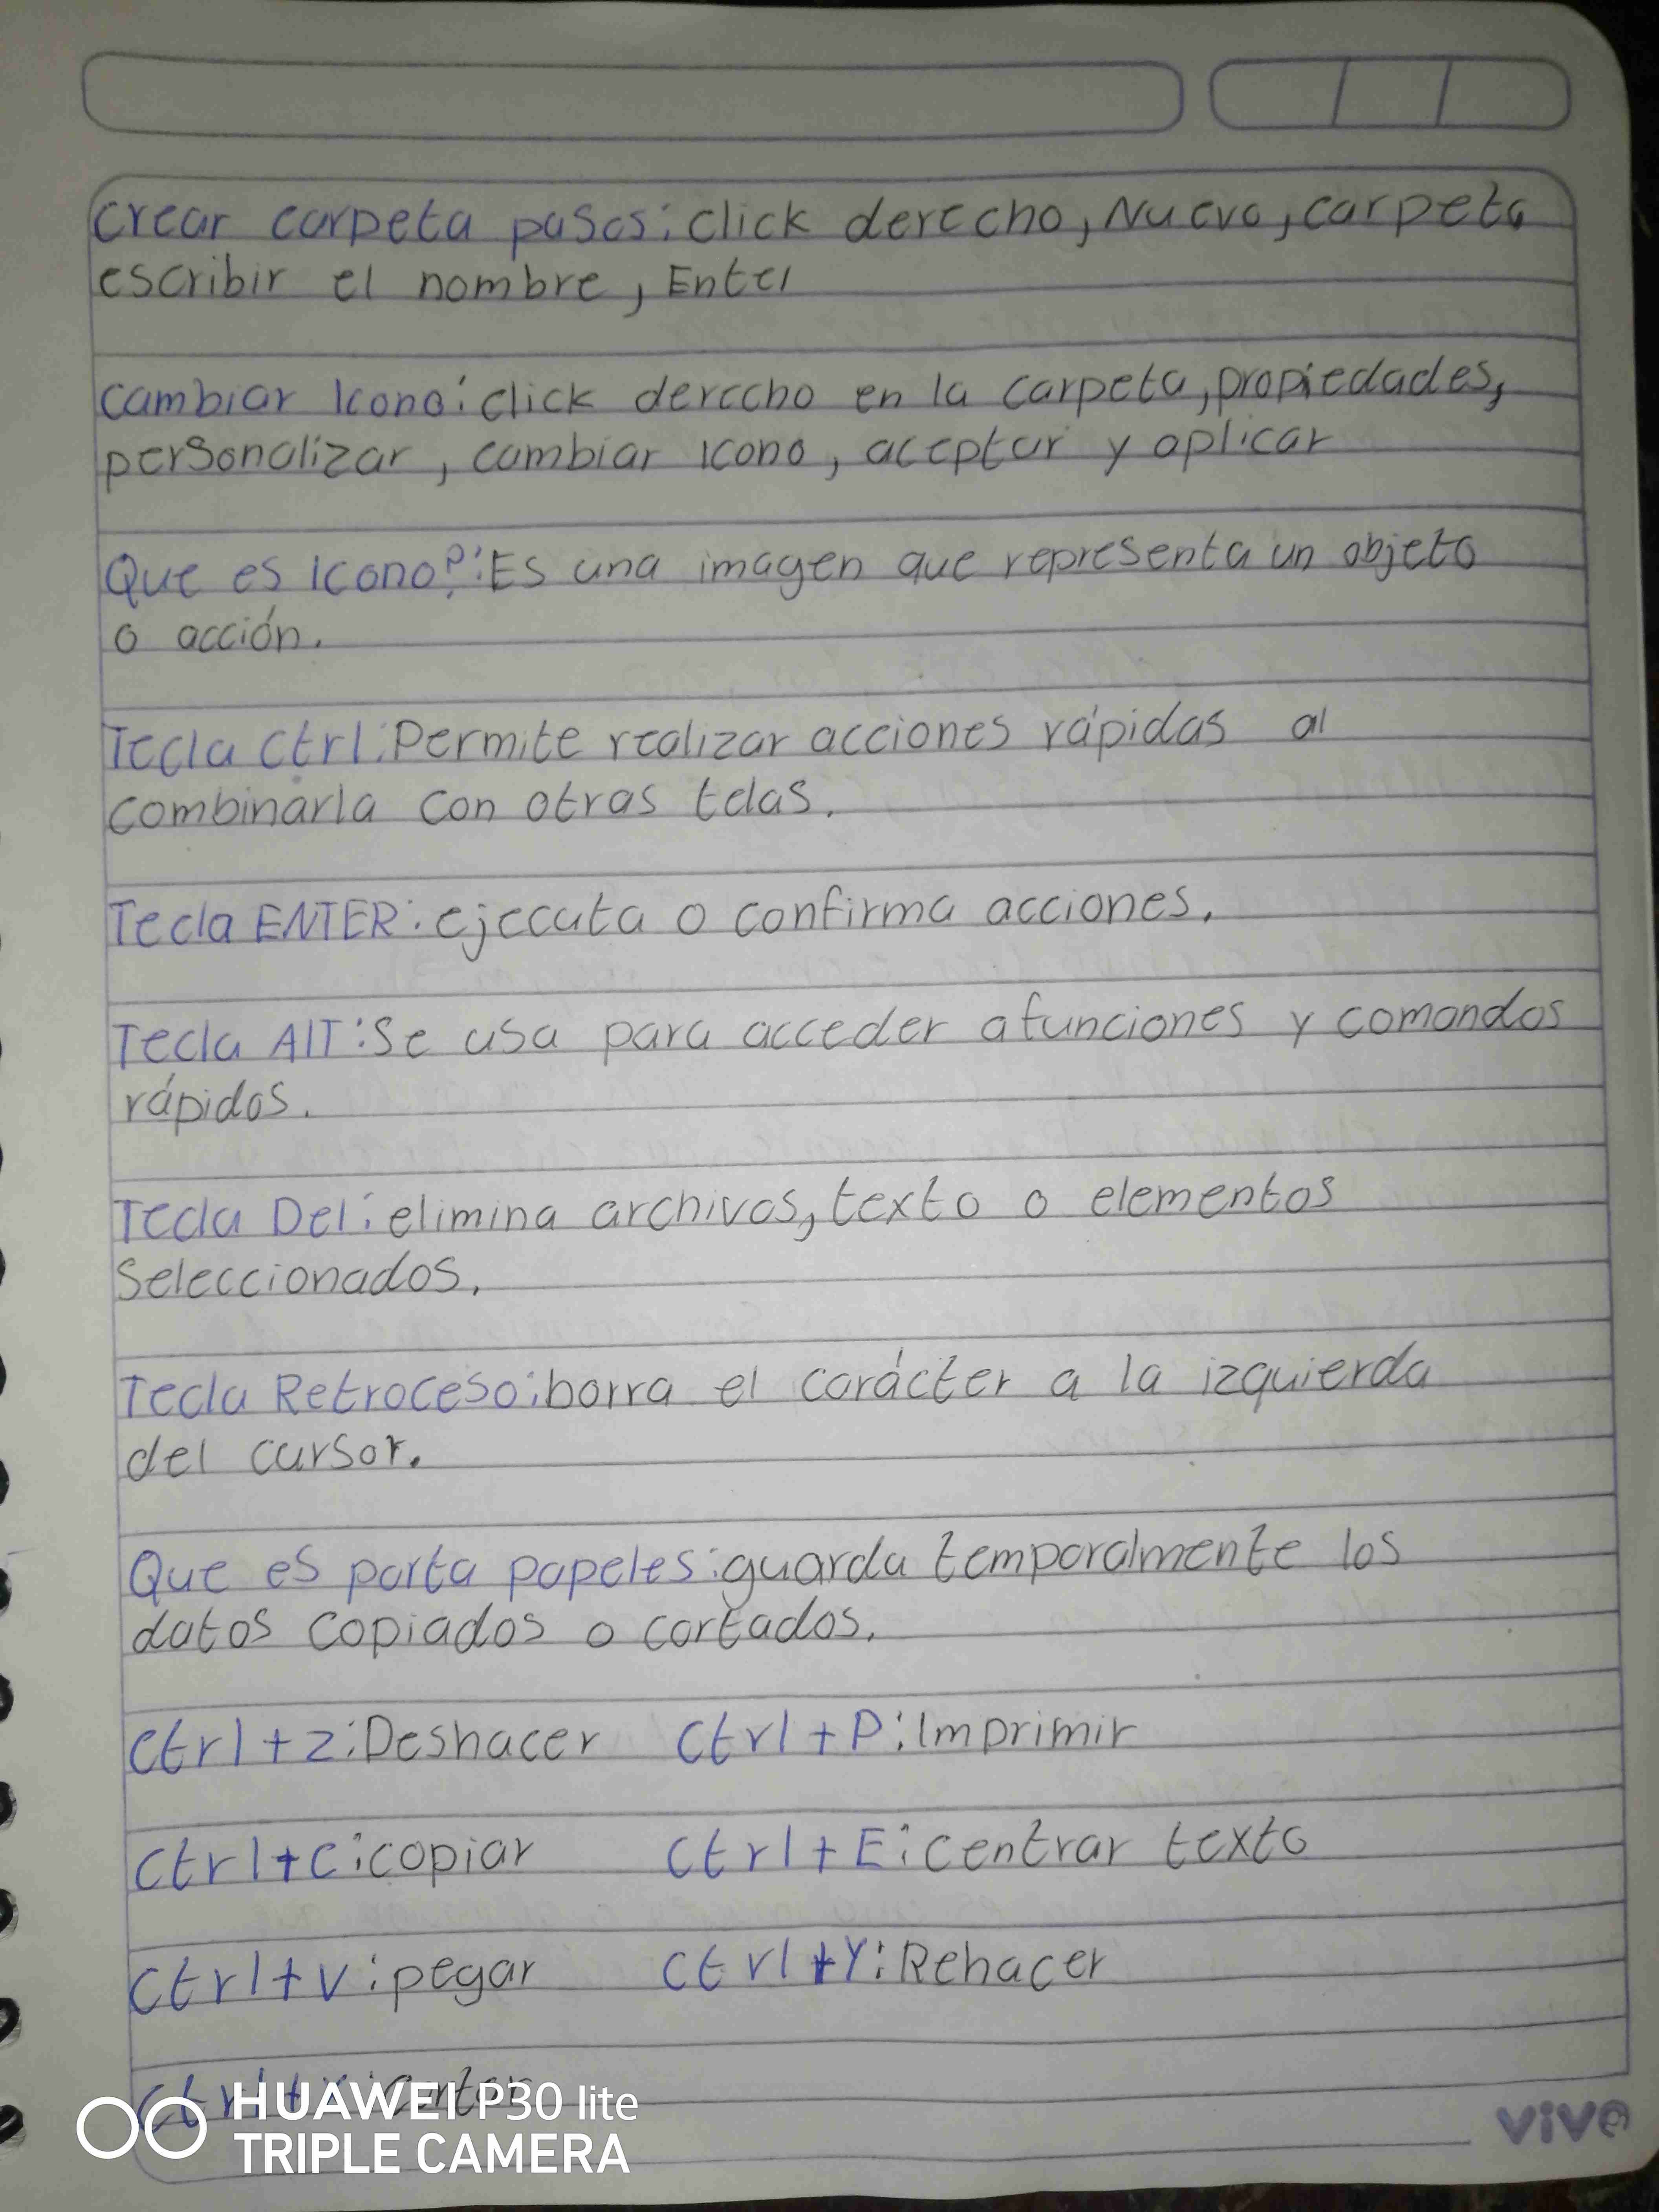 crear carpeta pasos: click derecho, Nuevo, carpeta
escribir el nombre, Enter
cambiar Icono: click derecho en la carpeta, propiedades,
personalizar, cambiar Icono, aceptar y aplicar
Que es Icono?: Es una imagen que representa un objeto
o acción.
Tecla Ctrl: Permite realizar acciones rápidas al
combinarla con otras telas.
Tecla ENTER: ejecuta o confirma acciones.
Tecla AlT: Se usa para acceder a funciones y comandos
rápidos.
Tecla Del: elimina archivos, texto o elementos
Seleccionados.
Tecla Retroceso: borra el carácter a la izquierda
del cursor.
Que es porta papeles: guarda temporalmente los
datos copiados o cortados.
Ctrl+z: Deshacer Ctrl+P: Imprimir
Ctrl+c: copiar Ctrl+E: centrar texto
Ctrl+v: pegar Ctrl+Y: Rehacer
Ctrl+x: cortar
HUAWEI P30 lite
TRIPLE CAMERA
vive